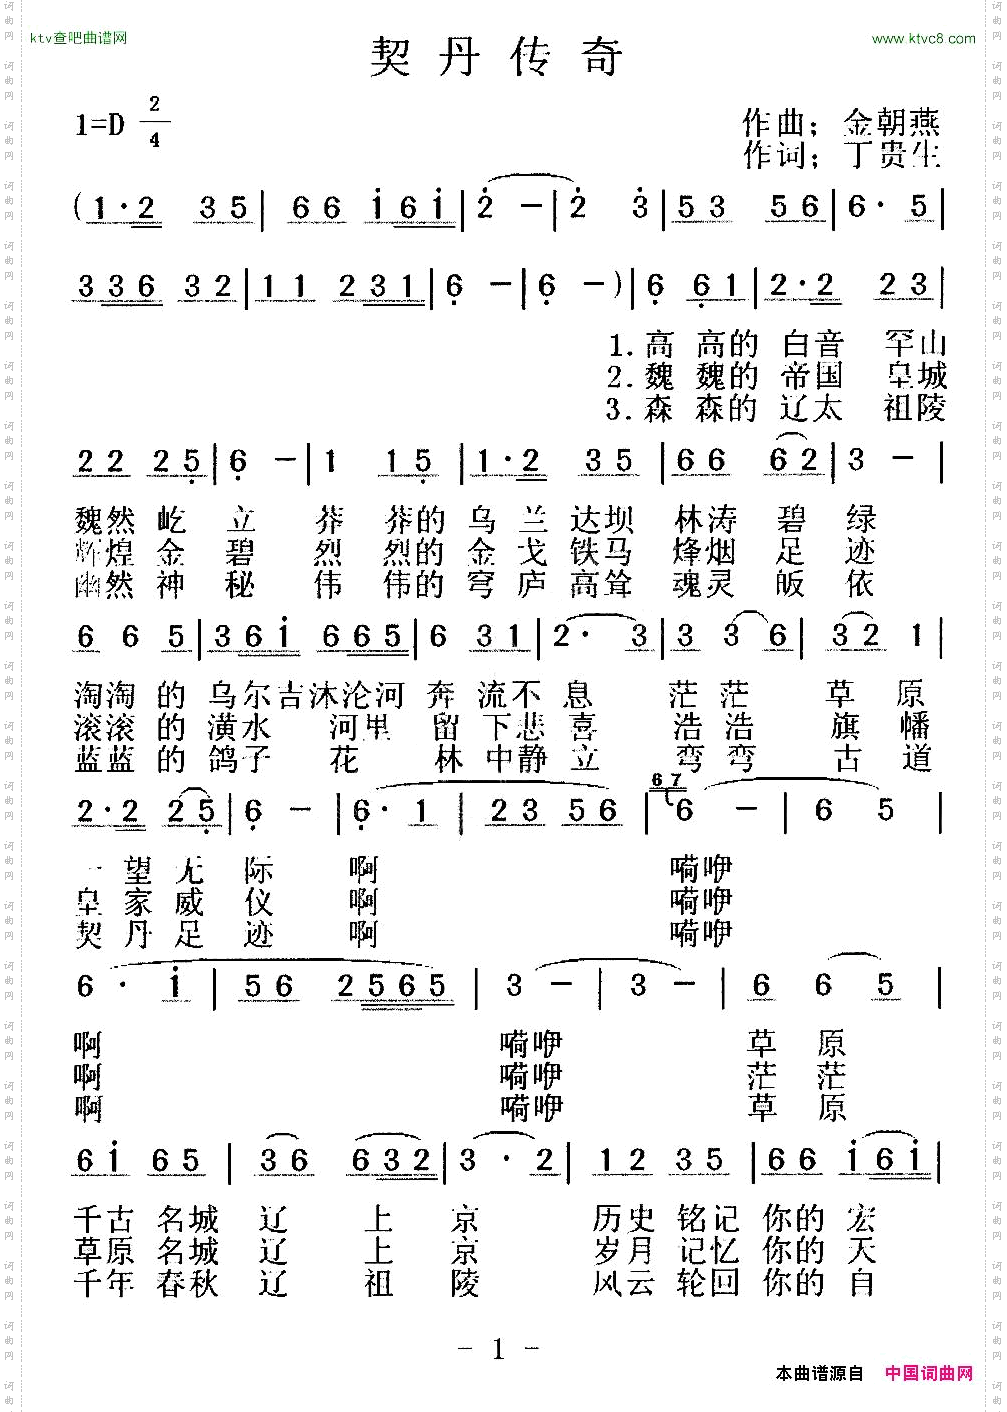 ktv查吧曲谱网
www.ktvc8.com
契丹传奇
1=D 2/4
作曲；金朝燕
作词；丁贵生
(1·2 35| 66 i6i| 2 - | 2 3| 53 56| 6· 5|
336 32| 11 231| 6 - | 6 - )| 6 61| 2·2 23|
1.高 高的 白音 罕山
2.魏 魏的 帝国 皇城
3.森 森的 辽太 祖陵
22 25| 6 - | 1 15| 1·2 35| 66 62| 3 - |
魏然 屹 立 莽 莽的 乌 兰 达坝 林涛 碧 绿
辉煌 金 碧 烈 烈的 金 戈 铁马 烽烟 足 迹
幽然 神 秘 伟 伟的 穹 庐 高耸 魂灵 皈 依
6 6 5| 36i 665| 6 31| 2· 3| 3 3 6| 32 1|
淘淘 的 乌尔吉沐沦河 奔 流不 息 茫 茫 草 原
滚滚 的 潢水 河里 留 下悲 喜 浩 浩 旗 幡
蓝蓝 的 鸽子 花 林 中静 立 弯 弯 古 道
67
2·2 25| 6 - | 6·1 | 23 56 | 6 - | 6 5|
一 望 无 际 啊 嗬咿
皇 家 威 仪 啊 嗬咿
契 丹 足 迹 啊 嗬咿
6 · i | 56 2565 | 3 - | 3 - | 6 6 5 |
啊 嗬咿 草 原
啊 嗬咿 茫 茫
啊 嗬咿 草 原
6i 65 | 36 632| 3 · 2| 12 35 | 66 i6i|
千古 名城 辽 上 京 历史 铭记 你的 宏
草原 名城 辽 上 京 岁月 记忆 你的 天
千年 春秋 辽 祖 陵 风云 轮回 你的 自
- 1 -
本曲谱源自 中国词曲网